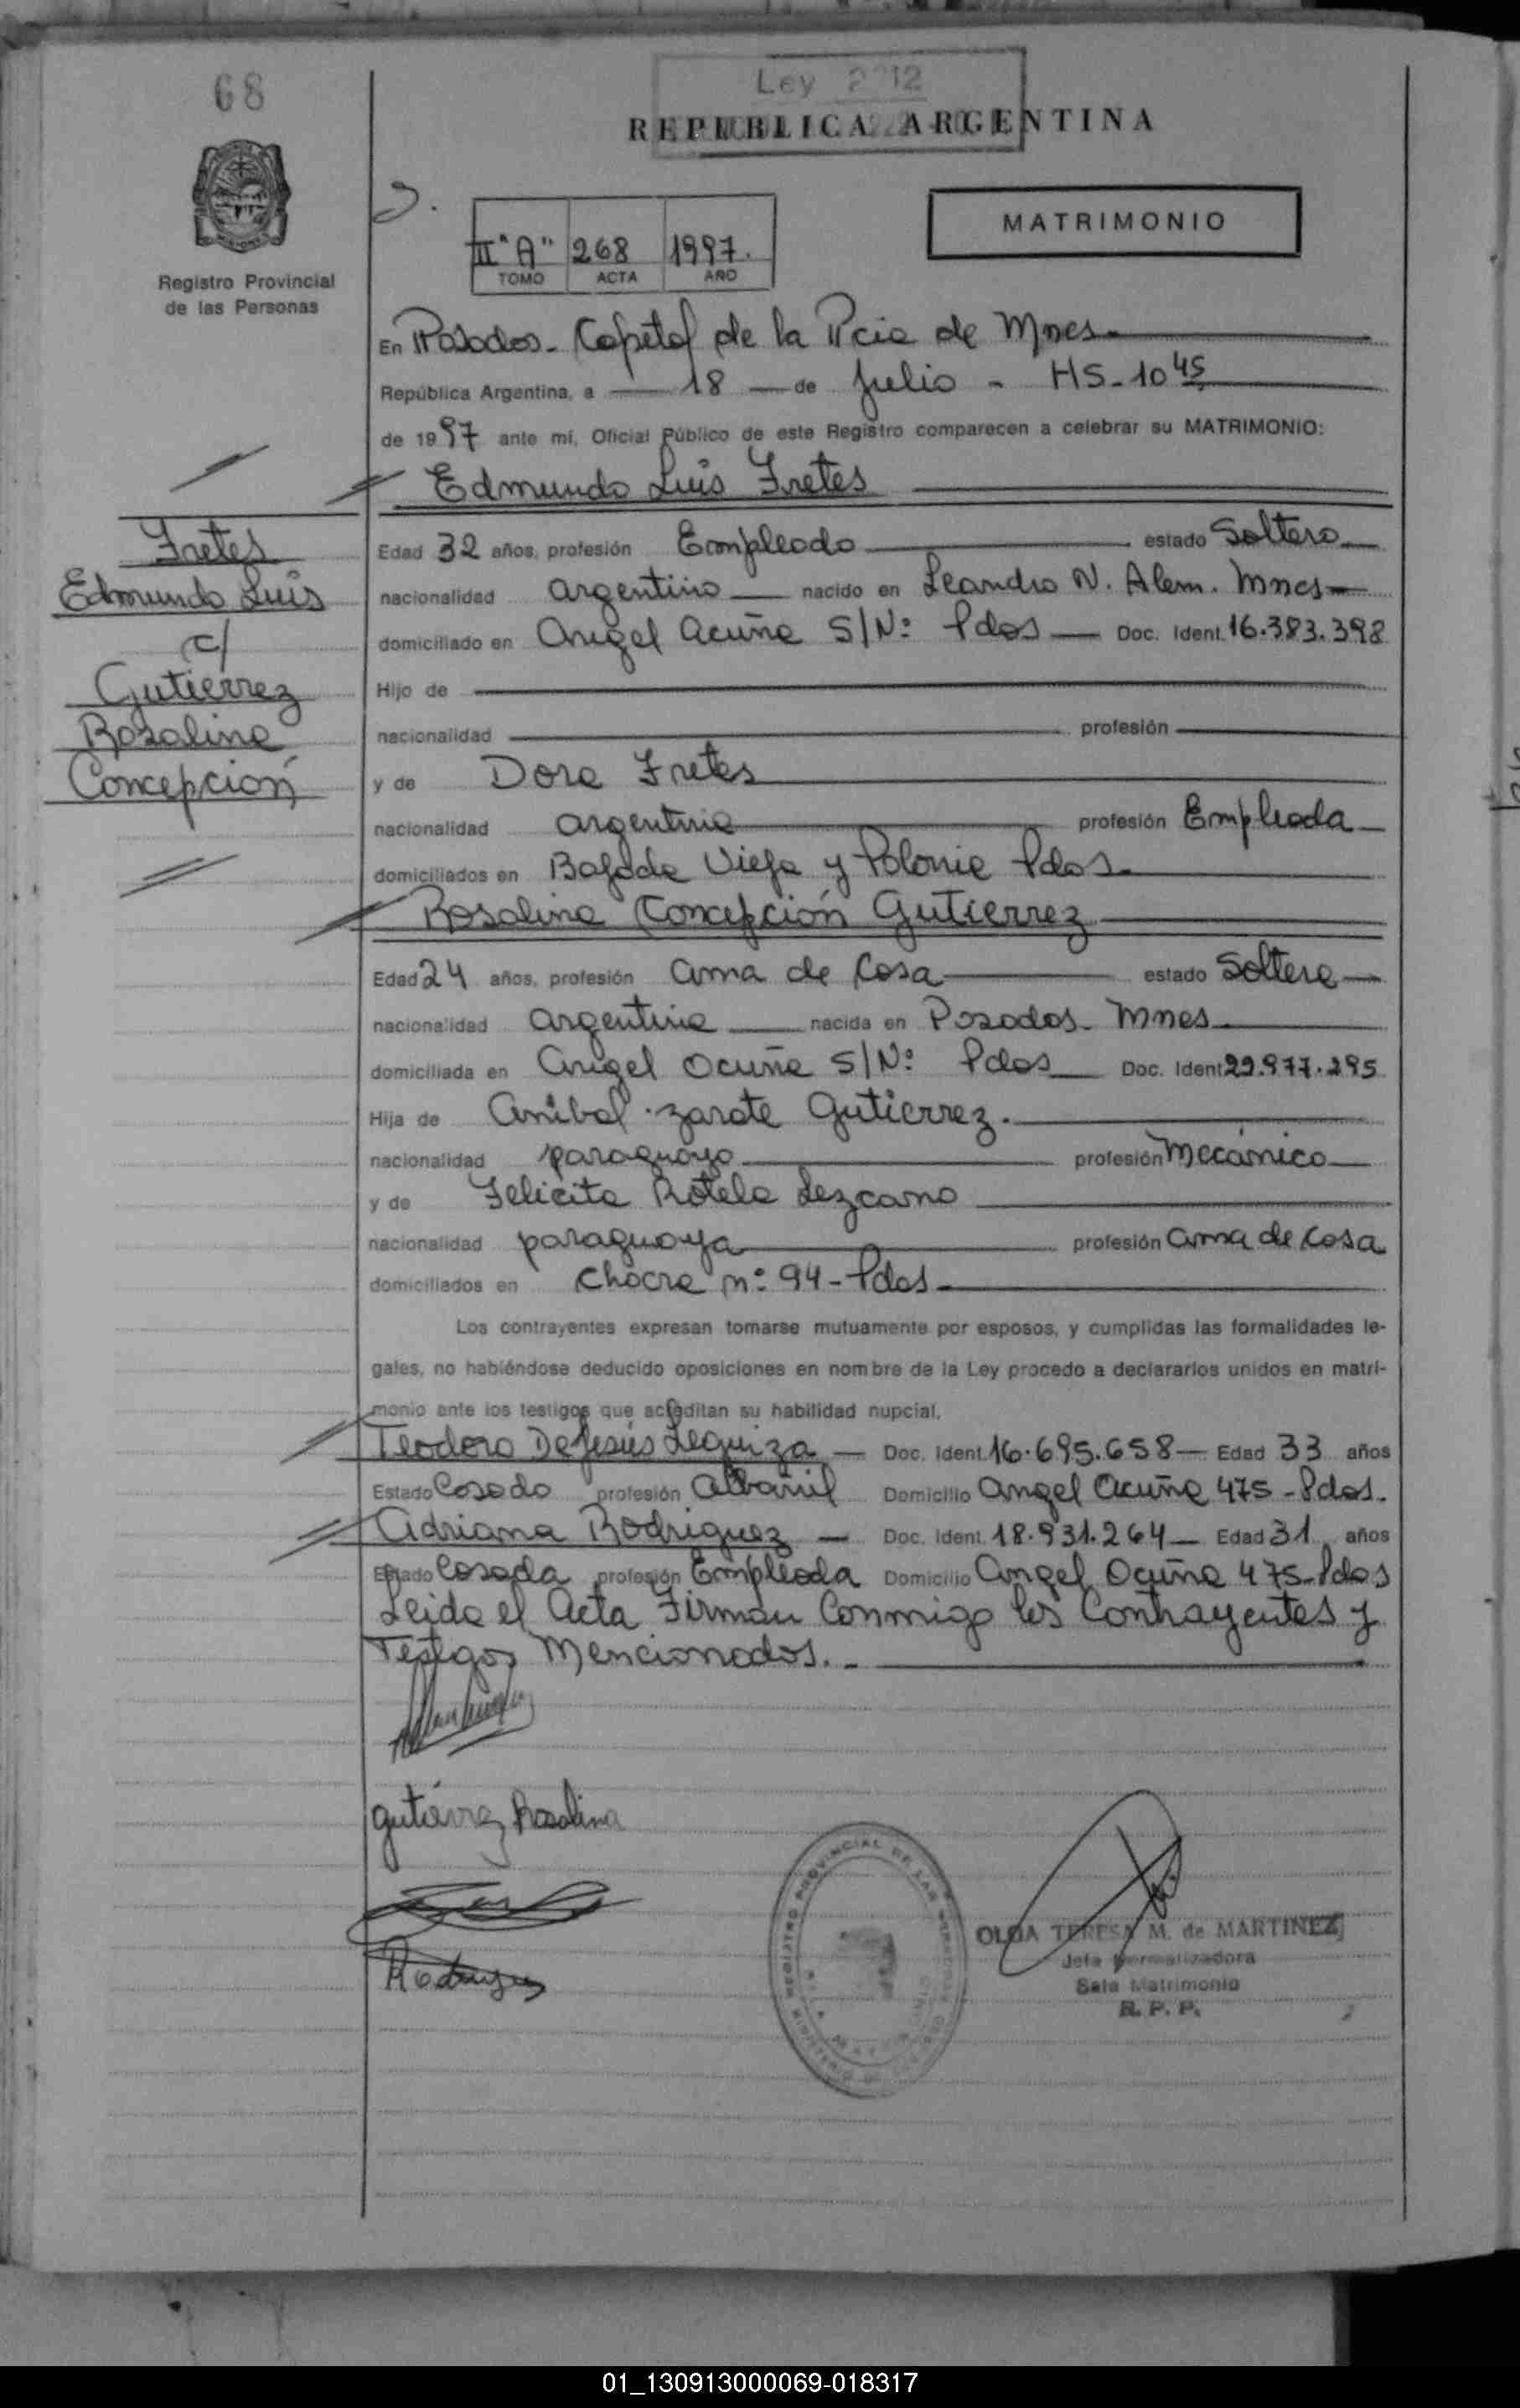 68
Ley
REPUBLICA ARGENTINA
MATRIMONIO
II "A" 268 1997.
TOMO ACTA AÑO
Registro Provincial
de las Personas
En Posadas - Capital de la Pcia de Mnes.
República Argentina, a 18 de Julio - HS - 10 45
de 1997 ante mí, Oficial Público de este Registro comparecen a celebrar su MATRIMONIO:
Edmundo Luis Fretes
Fretes
Edmundo Luis
c/
Gutierrez
Rosalina
Concepción
Edad 32 años, profesión Empleado estado Soltero
nacionalidad argentino nacido en Leandro N. Alem. Mnes
domiciliado en Angel Acuña S/Nº Pdas Doc. Ident. 16.383.398
Hijo de
nacionalidad profesión
y de Dora Fretes
nacionalidad argentina profesión Empleada
domiciliados en Bajada Vieja y Polonia Pdas.
Rosalina Concepción Gutierrez
Edad 24 años, profesión ama de Casa estado Soltera
nacionalidad argentina nacida en Posadas - Mnes
domiciliada en Angel Acuña S/Nº Pdas Doc. Ident. 29.977.295
Hija de Anibal zarate Gutierrez.
nacionalidad paraguayo profesión Mecánico
y de Felicita Rotela Lezcano
nacionalidad paraguaya profesión ama de Casa
domiciliados en Chacra nº 94 - Pdas
Los contrayentes expresan tomarse mutuamente por esposos, y cumplidas las formalidades le-
gales, no habiéndose deducido oposiciones en nombre de la Ley procedo a declararlos unidos en matri-
monio ante los testigos que acreditan su habilidad nupcial.
Teodoro De Jesús Leguiza Doc. Ident. 16.695.658 Edad 33 años
Estado Casado profesión Albañil Domicilio Angel Acuña 475 - Pdas.
Adriana Rodriguez Doc. Ident. 18.931.264 Edad 31 años
Estado Casada profesión Empleada Domicilio Angel Acuña 475 - Pdas
Leida el Acta Firman Conmigo los Contrayentes y
Testigos Mencionados.
Gutierrez Rosalina
OLGA TERESA M. de MARTINEZ
Jefa Normalizadora
Sala Matrimonio
R. P. P.
01_130913000069-018317